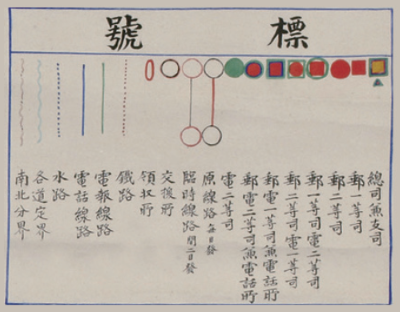 標號
總司兼支司
郵一等司
郵二等司
郵一等司電二等司
郵二等司電一等司
郵電一等司兼電話所
郵電二等司兼電話所
電二等司
原線路每日發
臨時線路間二日發
交換所
領奴所
鐵路
電報線路
電話線路
水路
各道定界
南北分界